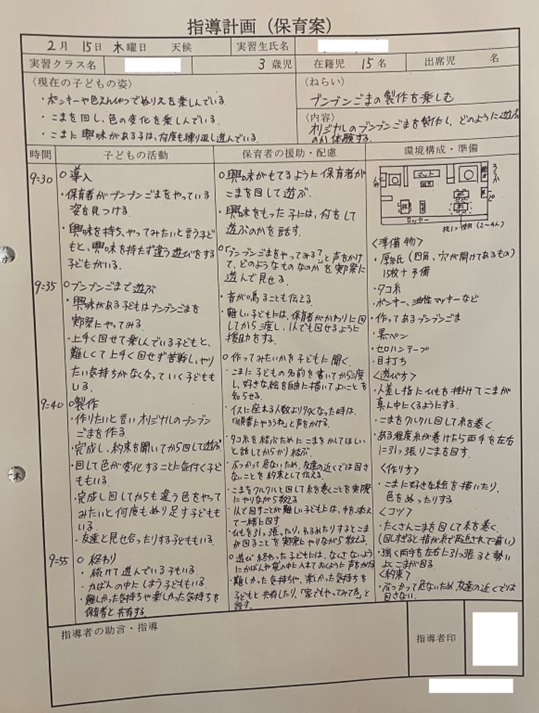 指導計画（保育案）
2月 15日 木曜日 天候
実習生氏名
実習クラス名
3歳児
在籍児 15名
出席児 名
〈現在の子どもの姿〉
・ポッキーや色えんぴつでぬりえを楽しんでいる
・こまを回し、色の変化を楽しんでいる。
・こまに興味がある子は、何度も繰り返し遊んでいる。
（ねらい）
ブンブンごまの製作を楽しむ
（内容）
オリジナルのブンブンごまを製作し、どのように遊ぶのか体験する。
時間
子どもの活動
保育者の援助・配慮
環境構成・準備
9:30
○導入
・保育者がブンブンごまをやっている姿を見つける。
・興味を持ち、やってみたいと言う子どもと、興味を持たず違う遊びをする子どもがいる。
9:35
○ブンブンごまで遊ぶ
・興味がある子どもはブンブンごまを実際にやってみる。
・上手く回せて楽しんでいる子どもと、難しくて上手く回せず苦戦し、やりたい気持ちがなくなっていく子どももいる。
9:40
○製作
・作りたいと言いオリジナルのブンブンごまを作る
・完成し、約束を聞いてから回して遊ぶ
・回して色が変化することに気付く子どももいる。
・完成し回してからも違う色をやってみたいと何度もぬり足す子どももいる
・友達と見せ合ったりする子どももいる。
9:55
○終わり
・続けて遊んでいる子もいる
・かばんの中にしまう子どももいる
・難しかった気持ちや楽しかった気持ちを保育者と共有する。
○興味がもてるように保育者がこまを回して遊ぶ。
・興味をもった子には、何をして遊ぶのかを話す。
○「ブンブンごまをやってみる？」と声をかけて、どのようなものなのかを実際に遊んで見せる。
・音が鳴ることも伝える
・難しい子どもには、保育者がかわりに回してから渡し、1人でも回せるように援助をする。
○作ってみたいかを子どもに聞く
・こまに子どもの名前を書いてから渡し、好きな絵を自由に描いてよいことを知らせる。
・イスに座れる人数より多くなった時は、「順番にやろうね」と声をかける。
・タコ糸を結ぶためにこまをかしてほしいと話してからかり結ぶ。
・ぶつかって危ないため、友達の近くでは回さないことを約束として伝える。
・こまをクルクルと回して糸を巻くことを実際にやりながら教える
・1人で回すことが難しい子どもには、手を添えて一緒に回す
・ひもを引っ張ったり、ゆるめたりするとこまが回ることを実際にやりながら教える。
○遊び終わった子どもには、なくさないようにかばんや袋の中に入れておくように声をかける
・難しかった気持ちや、楽しかった気持ちを子どもと共有したり、「家でもやってみてね」と話す。
ロッカー
〈準備物〉
・タコ糸
・ポンキー、油性マッキーなど
・作ってあるブンブンごま
・黒ペン
・セロハンテープ
・目打ち
〈遊び方〉
・人差し指にひもを掛けてこまが真ん中にくるようにする。
・こまをクルクル回して糸を巻く。
・ある程度糸が巻けたら両手を左右に引っ張りこまを回す。
〈作り方〉
・こまに好きな絵を描いたり、色をぬったりする
〈コツ〉
・たくさんこまを回して糸を巻く。
・強く両手を左右に引っ張ると勢いよくこまが回る。
〈約束〉
・ぶつかって危ないため友達の近くでは回さない。
指導者の助言・指導
指導者印